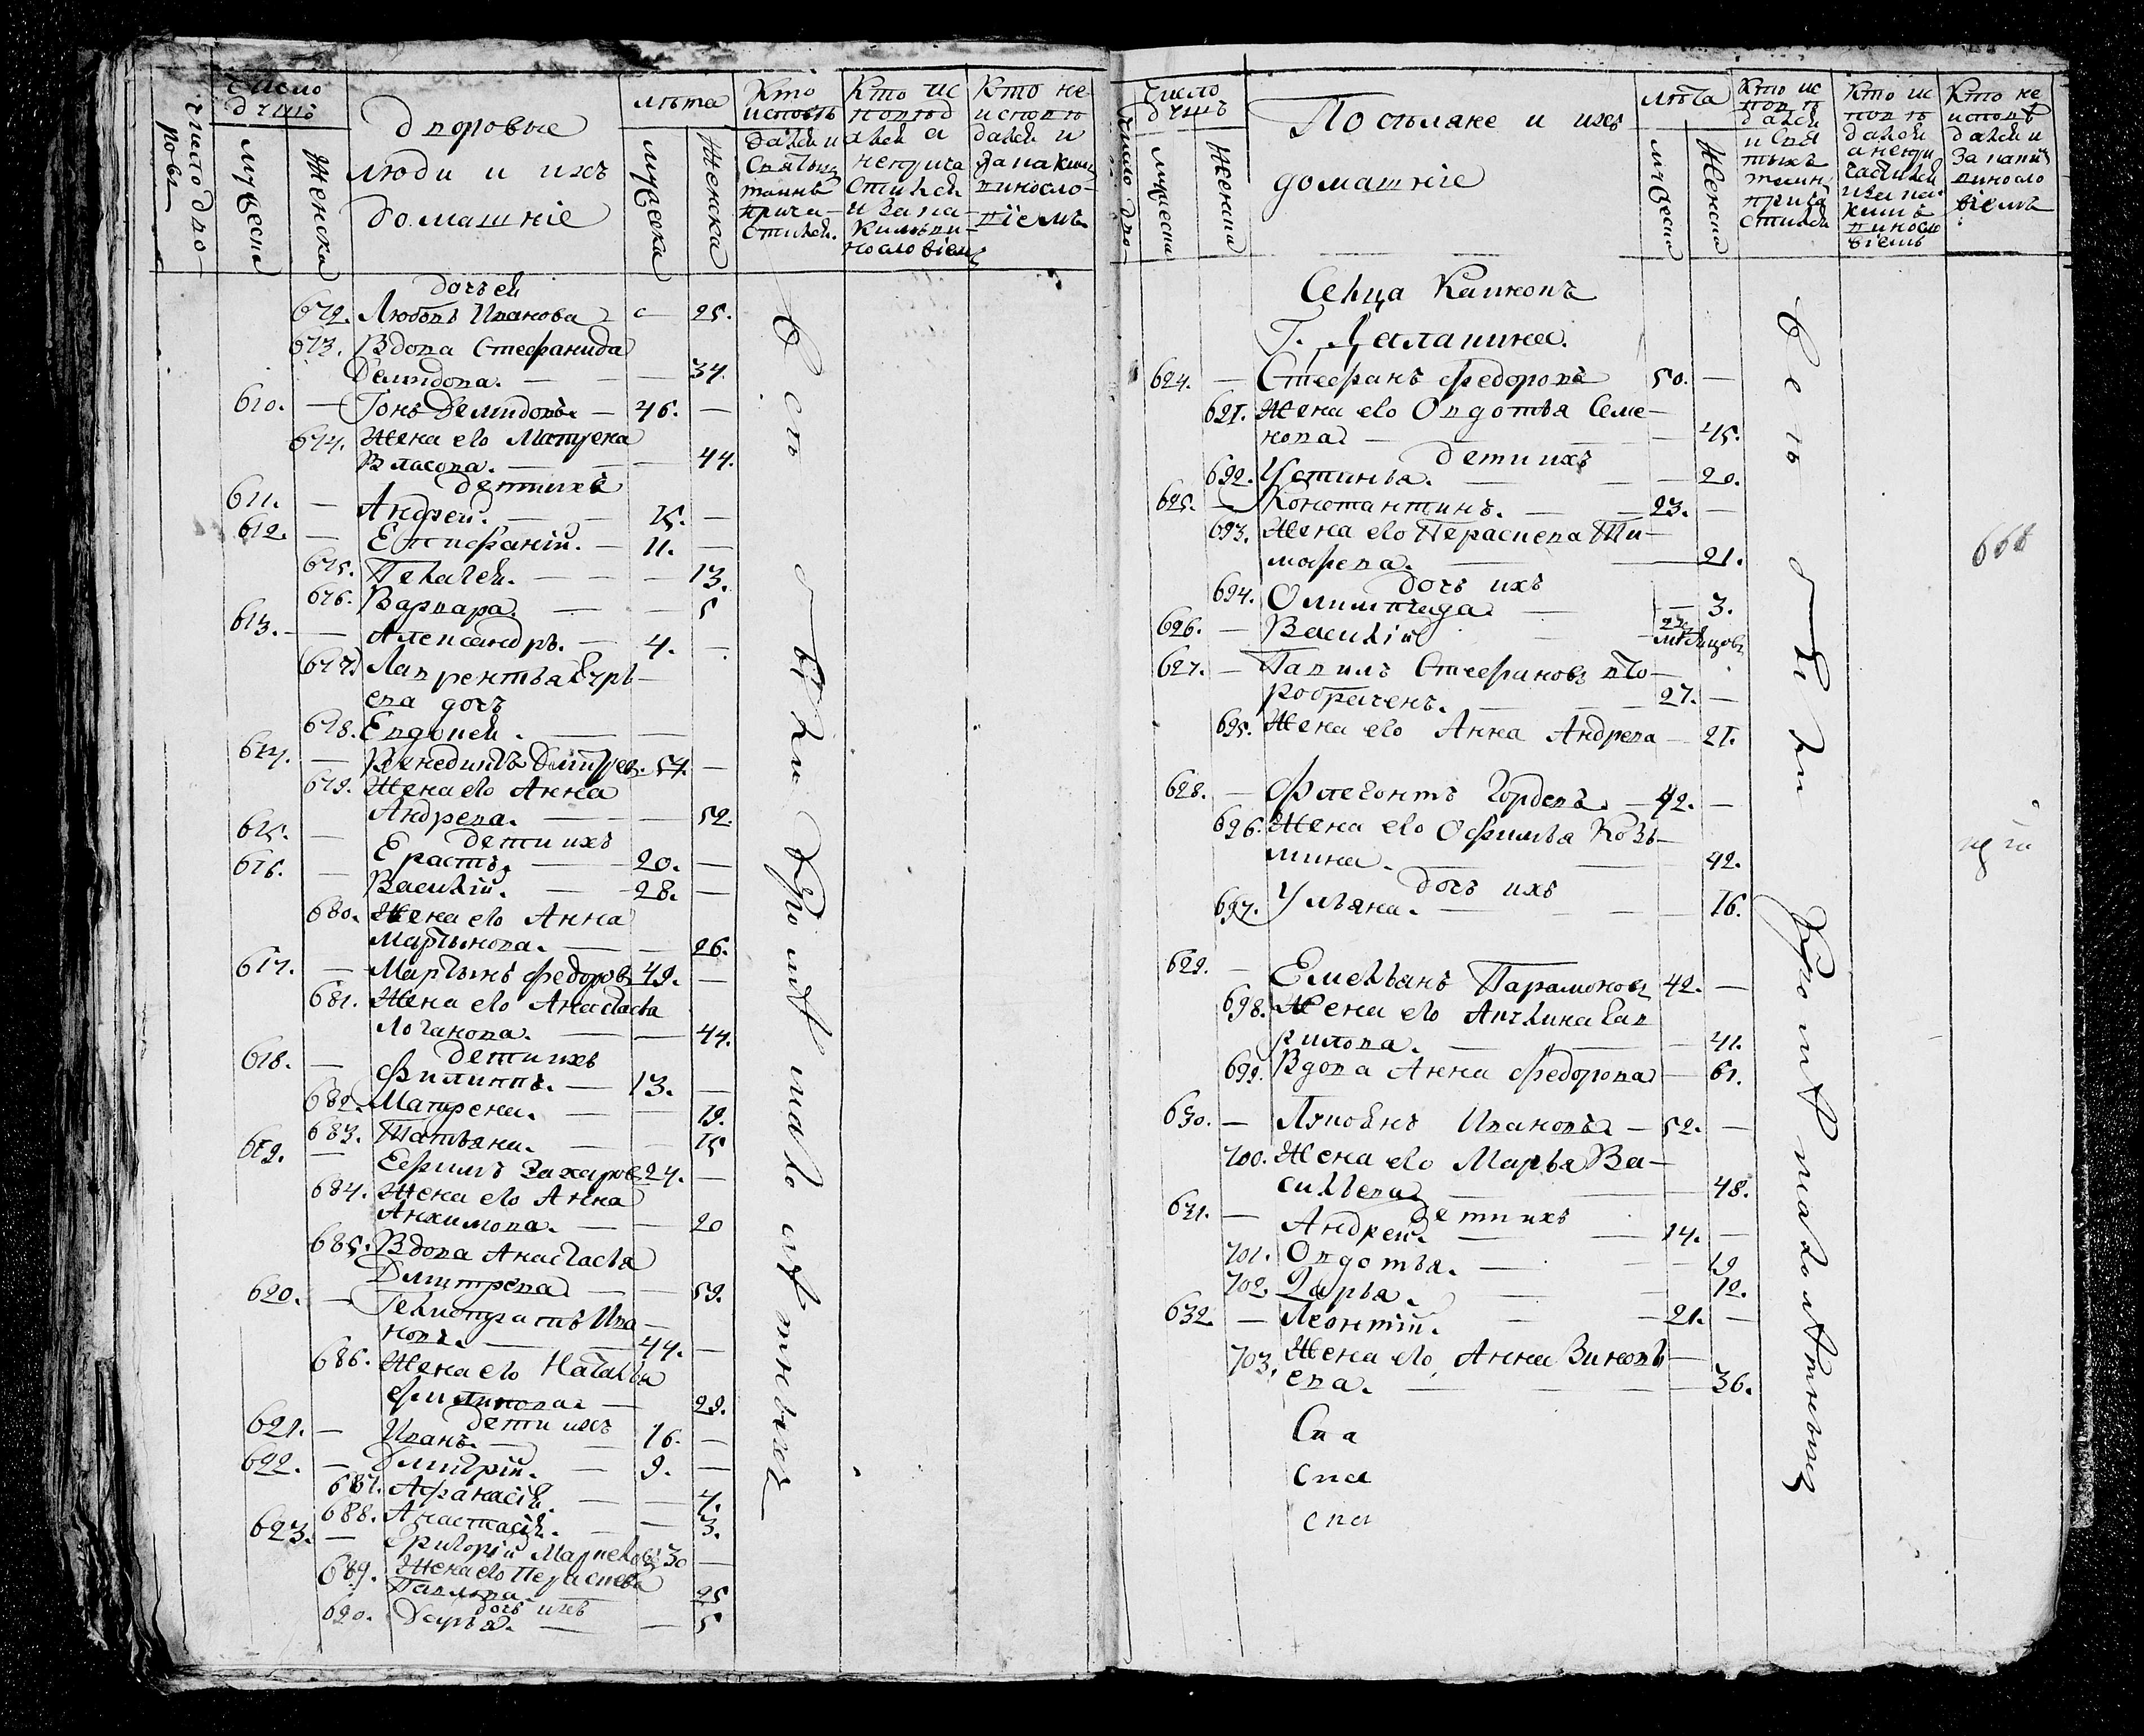 Число
дво
ровъ
Число
душъ
мужеска
женска
дворовые
люди и ихъ
домашніе
лѣта
мужеска
женска
Кто
исповѣ
дался и
Святыхъ
таинъ
прича-
стился.
Кто ис
повѣд
ался а
неприча
стился
и за ка-
кимъ ви-
нословіем
Кто не
исповѣ
дался и
за каким
виносло-
віемъ
дочь ей
672. Любовь Иванова 25.
673. Вдова Стефанида
Демидова. — — 34.
610. — Іонъ Демидовъ — 46. —
674. Жена его Матрена
Власова. — — 44.
дети ихъ
611. — Андрей. — 15. —
612. — Епифаній. — 11. —
675. Пелагея. — — 13.
676. Варвара. — — 5
613. — Александръ. — 4. —
677. Лаврентья Гурь-
ева дочь
678. Евдокея. — —
614. — Венедиктъ Дмитрев. 54. —
679. Жена его Анна
Андрева. — — 52.
дети ихъ
615. — Ерастъ. — 20. —
616. — Василій. — 28. —
680. Жена его Анна
Мартынова. — — 26.
617. — Мартынъ Федоровъ 49. —
681. Жена его Анастасья
Логанова. — — 44.
дети ихъ
618. — Филиппъ. — 13. —
682. Матрена. — — 19.
683. Татьяна. — — 15
619. — Ефимъ Захаровъ 24. —
684. Жена его Анна
Анхимова. — — 20
685. Вдова Анастасья
Дмитрева — — 59.
620. — Геликотратъ Ива-
новъ. — 44. —
686. Жена его Наталья
Филипова — 29.
дети ихъ
621. — Иванъ. — 16. —
622. — Дмитрій. — 9. —
687. Афанасія. — — 4.
688. Анастасія. — — 3.
623. — Григорій Маркеловъ 30 —
689. Жена его Парасковья
Павлова. 25
дочь ихъ
690. Дарья. — — 5
Всѣ были кромѣ малолѣтныхъ
Число дво
Число
душъ
мужеска
женска
Поселяне и ихъ
домашніе
лѣта
мужеска
женска
Кто ис
повѣ
дался
и Свя
тыхъ
таинъ
прича
стился
Кто ис
повѣ
дался
а непри
частился
и за ка-
кимъ
винослο
віемъ
Кто не
исповѣ
дался и
за каким
винословο
віемъ
Сельца Каликовъ
Г. Далапина.
624. — Стефанъ Федоровъ 50. —
691. Жена его Овдотья Семе-
нова — — 45.
дети ихъ
692. Устинья. — — 20.
625. — Константинъ. — 23. —
693. Жена его Пераскева Ти-
мофева. — 21.
дочь ихъ
694. Олимпіада. — — 3.
626. — Василій — месяцовъ
627. — Павилъ Стефановъ вто-
робраченъ. — 27. —
695. Жена его Анна Андрева — 21.
628. — Флегонтъ Гордевъ. — 42. —
696. Жена его Офимья Козь-
мина. — — 42.
дочь ихъ
697. Ульяна. — — 16.
629. — Емельянъ Парамоновъ 42. —
698. Жена его Акулина Гав
рилова. — — 41.
699. Вдова Анна Федорова — 61.
630. — Лукьянъ Ивановъ — 52. —
700. Жена его Марья Ва-
сильева — — 48.
дети ихъ
631. — Андрей. — 14. —
701. Овдотья. — — 19
702. Дарья. — — 12.
632. — Леонтій. — 21. —
703. Жена его Анна Зиновь-
ева. — — 36.
Сва
сва
сва
Всѣ были Кромѣ малолѣтныхъ